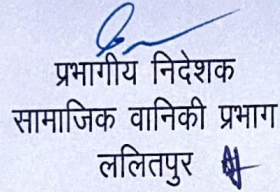 प्रभागीय निदेशक
सामाजिक वानिकी प्रभाग
ललितपुर